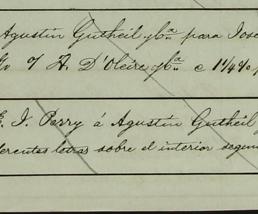 Agustin Gutheil y ca. para José
y H. D'Oleire y ca. c 1 1/4 %
J. Perry á Agustin Gutheil
ferentes letras sobre el interior segun